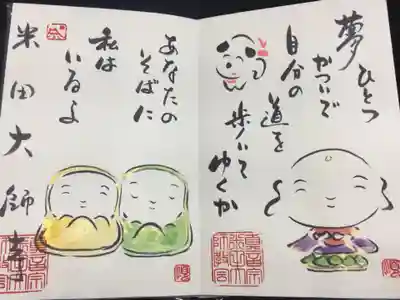 夢ひとつ
かついで
自分の
道を
歩いて
ゆくか
あなたの
そばに
私は
いるよ
米田大師